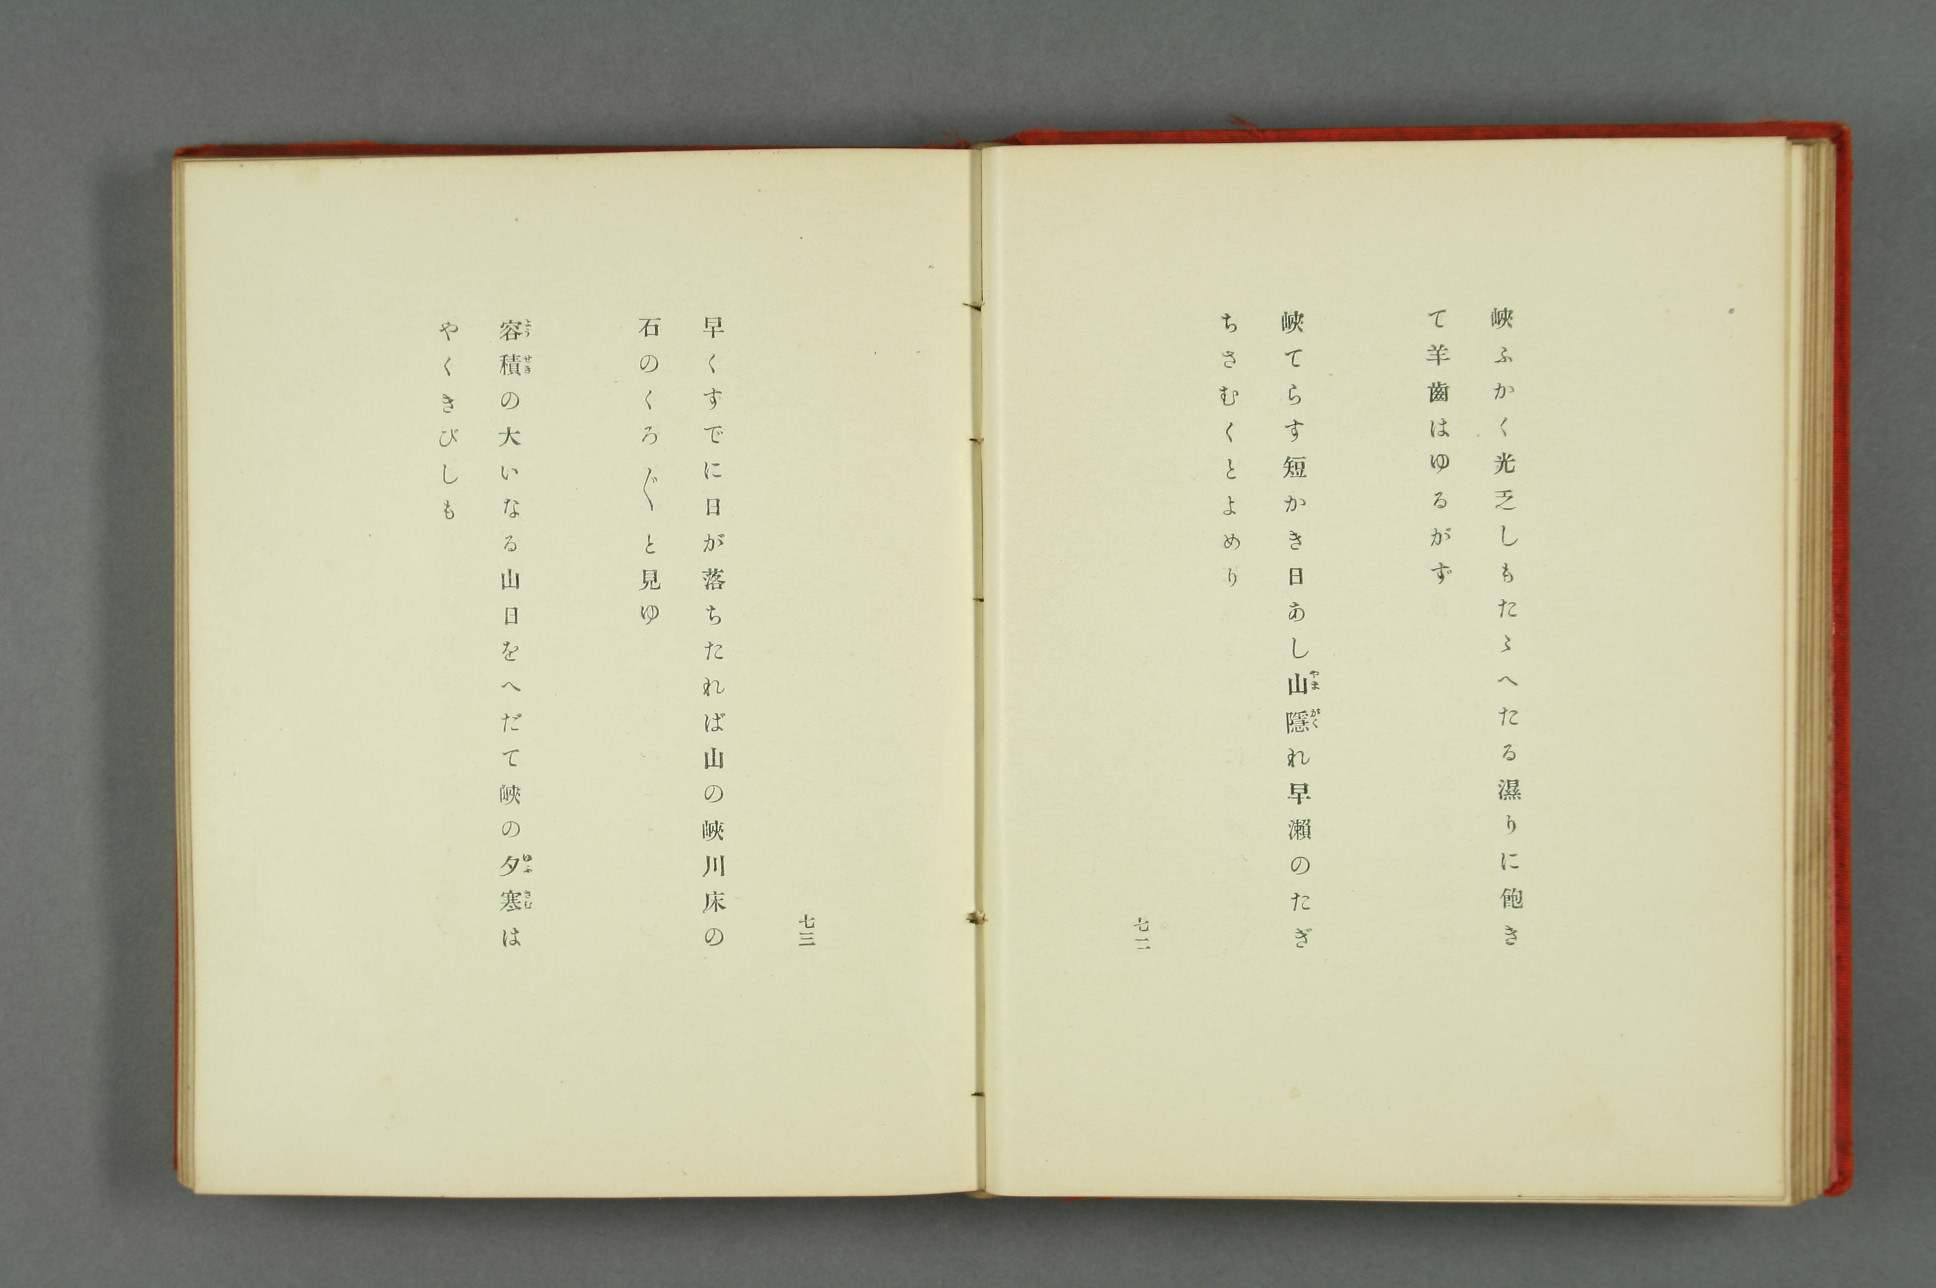 峽ふかく光乏しもたゝへたる濕りに飽き
て羊齒はゆるがず
峽てらす短かき日あし山隱れ早瀬のたぎ
ちさむくとよめり
七二
七三
早くすでに日が落ちたれば山の峽川床の
石のくろ〲と見ゆ
容積の大いなる山日をへだて峽の夕寒は
やくきびしも